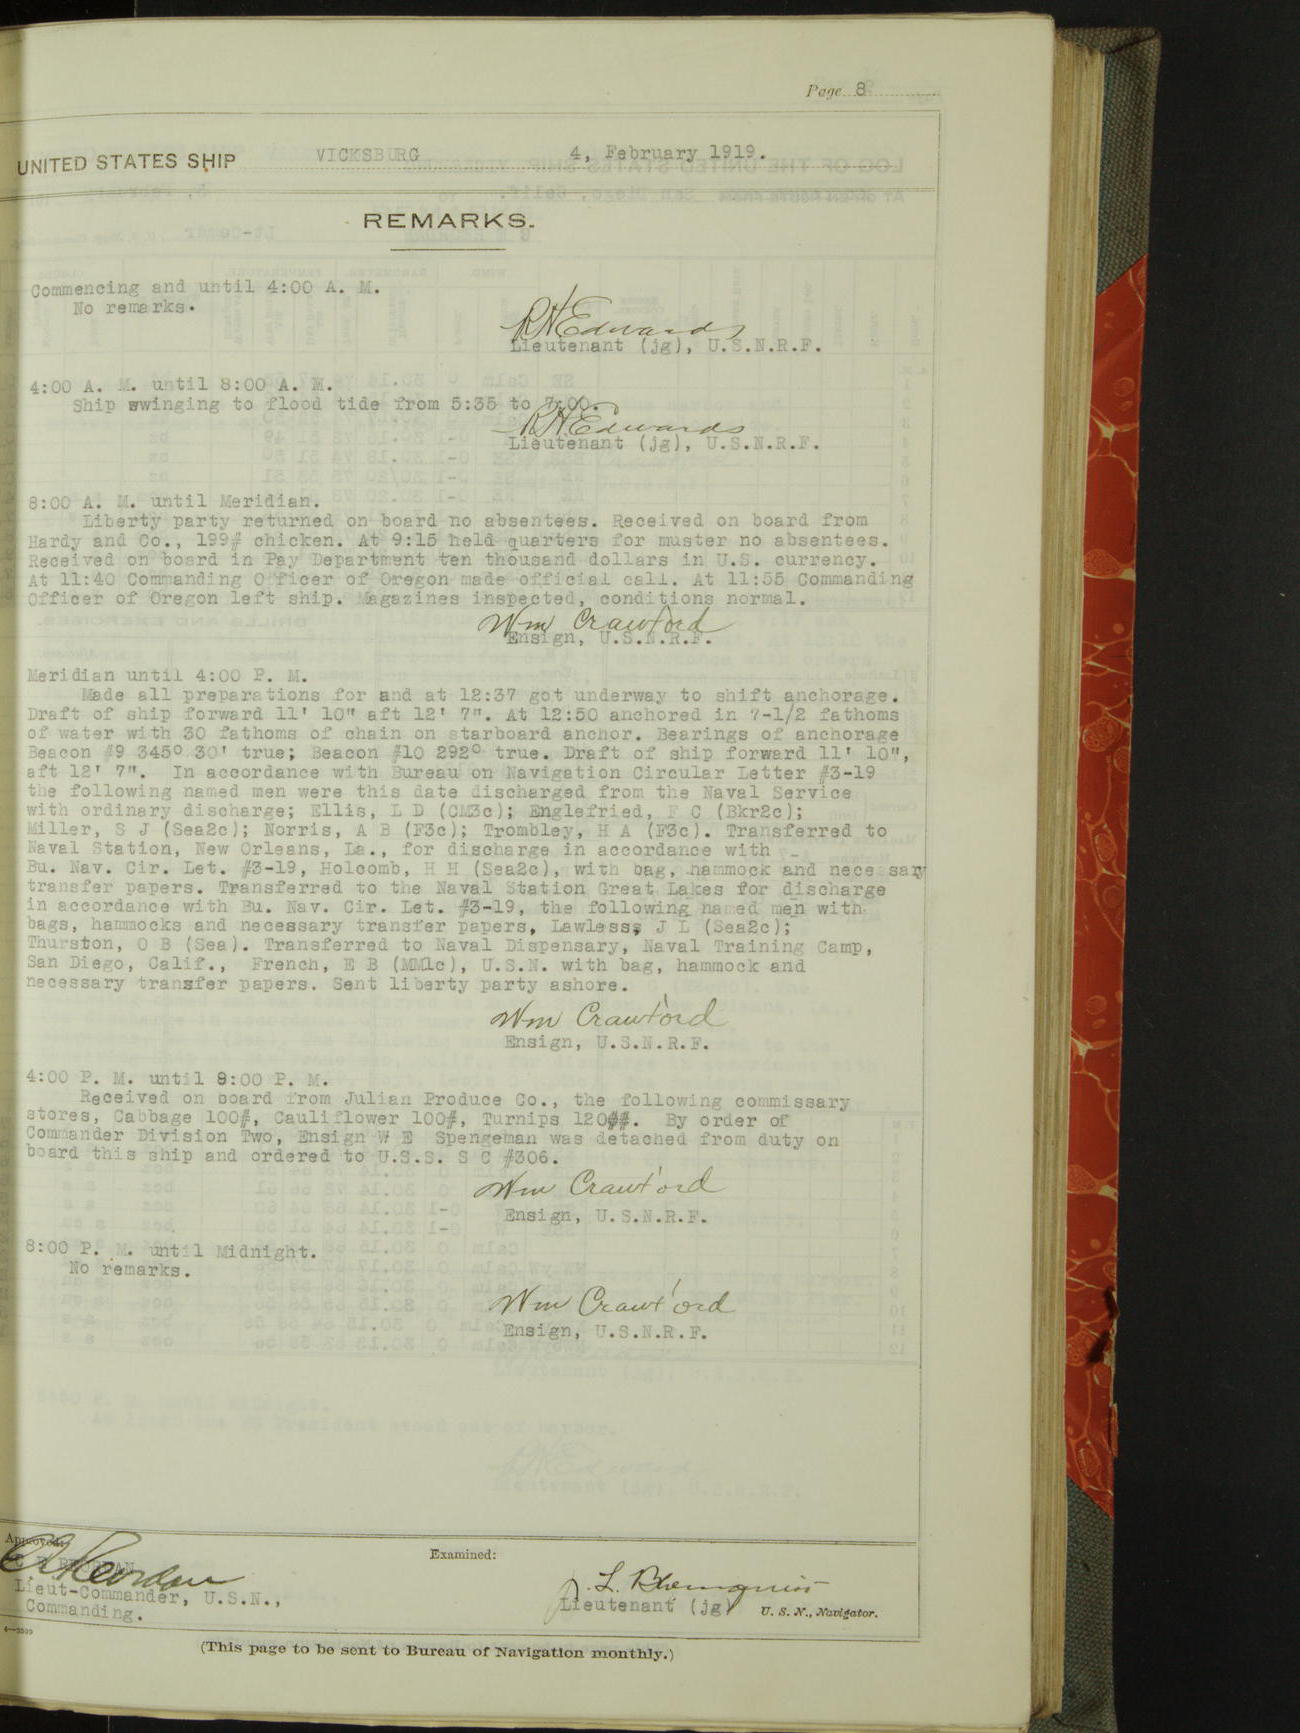 Page 8
UNITED STATES SHIP VICKSBURG 4, February 1919.
REMARKS.
Commencing and until 4:00 A. M.
No remarks.
R H Edwards
Lieutenant (jg), U.S.N.R.F.
4:00 A. M. until 8:00 A. M.
Ship swinging to flood tide from 5:35 to 7:00.
R H Edwards
Lieutenant (jg), U.S.N.R.F.
8:00 A. M. until Meridian.
Liberty party returned on board no absentees. Received on board from
Hardy and Co., 199# chicken. At 9:15 held quarters for muster no absentees.
Received on board in Pay Department ten thousand dollars in U.S. currency.
At 11:40 Commanding O ficer of Oregon made official call. At 11:55 Commanding
Officer of Oregon left ship. Magazines inspected, conditions normal.
Wm Crawford
Ensign, U.S.N.R.F.
Meridian until 4:00 P. M.
Made all preparations for and at 12:37 got underway to shift anchorage.
Draft of ship forward 11' 10" aft 12' 7". At 12:50 anchored in 7-1/2 fathoms
of water with 30 fathoms of chain on starboard anchor. Bearings of anchorage
Beacon #9 345° 30' true; Beacon #10 292° true. Draft of ship forward 11' 10",
aft 12' 7". In accordance with Bureau on Navigation Circular Letter #3-19
the following named men were this date discharged from the Naval Service
with ordinary discharge; Ellis, L D (CM3c); Englefried, F C (Bkr2c);
Miller, S J (Sea2c); Norris, A B (F3c); Trombley, H A (F3c). Transferred to
Naval Station, New Orleans, La., for discharge in accordance with
Bu. Nav. Cir. Let. #3-19, Holcomb, H H (Sea2c), with bag, hammock and nece sary
transfer papers. Transferred to the Naval Station Great Lakes for discharge
in accordance with Bu. Nav. Cir. Let. #3-19, the following named men with
bags, hammocks and necessary transfer papers, Lawless, J L (Sea2c);
Thurston, O B (Sea). Transferred to Naval Dispensary, Naval Training Camp,
San Diego, Calif., French, E B (MM1c), U.S.N. with bag, hammock and
necessary transfer papers. Sent liberty party ashore.
Wm Crawford
Ensign, U.S.N.R.F.
4:00 P. M. until 8:00 P. M.
Received on board from Julian Produce Co., the following commissary
stores, Cabbage 100#, Cauliflower 100#, Turnips 120##. By order of
Commander Division Two, Ensign W E Spengeman was detached from duty on
board this ship and ordered to U.S.S. S C #306.
Wm Crawford
Ensign, U.S.N.R.F.
8:00 P. M. until Midnight.
No remarks.
Wm Crawford
Ensign, U.S.N.R.F.
Approved:
Examined:
Lieut-Commander, U.S.N.,
Commanding.
Lieutenant (jg) U. S. N., Navigator.
(This page to be sent to Bureau of Navigation monthly.)